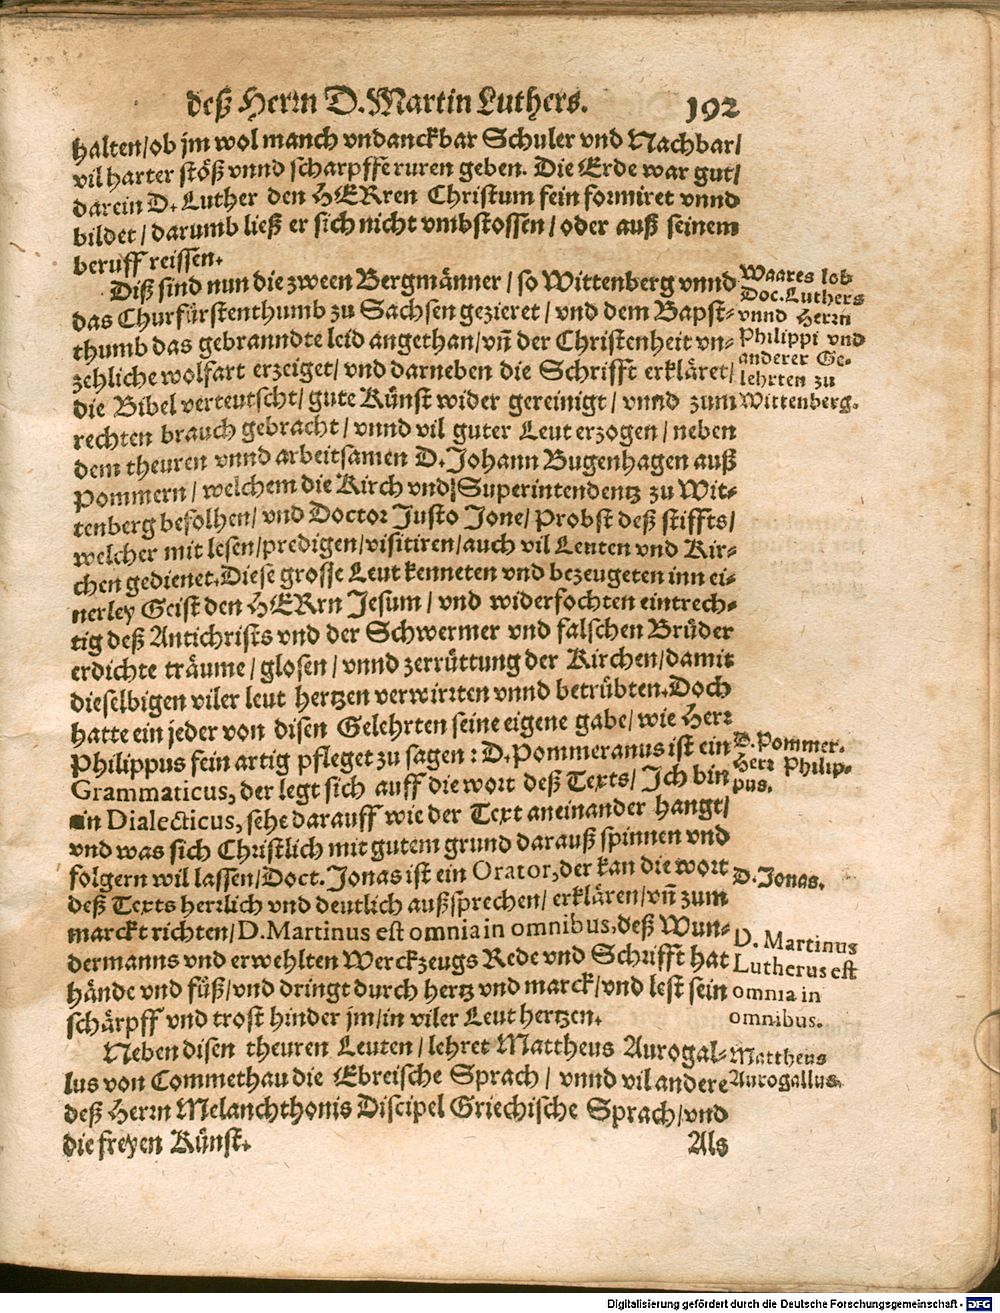 deß Herrn D. Martin Luthers. 192
halten/ob jm wol manch vndanckbar Schuler vnd Nachbar/
vil harter stöß vnnd scharpffe ruren geben. Die Erde war gut/
darein D. Luther den HERren Christum fein formiret vnnd
bildet/darumb ließ er sich nicht vmbstossen/oder auß seinem
beruff reissen.
Diß sind nun die zween Bergmänner/so Wittenberg vnnd
das Churfürstenthumb zu Sachsen gezieret/vnd dem Bapst-
thumb das gebranndte leid angethan/vñ der Christenheit vn-
zehliche wolfart erzeiget/vnd darneben die Schrifft erkläret/
die Bibel verteutscht/gute Künst wider gereinigt/vnnd zum
rechten brauch gebracht/vnnd vil guter Leut erzogen/neben
dem theuren vnnd arbeitsamen D. Johann Bugenhagen auß
Pommern/welchem die Kirch vnd Superintendentz zu Wit-
tenberg befolhen/vnd Doctor Justo Jone/Probst deß stiffts/
welcher mit lesen/predigen/visitiren/auch vil Leuten vnd Kir-
chen gedienet. Diese grosse Leut kenneten vnd bezeugeten inn ei-
nerley Geist den HERrn Jesum/vnd widerfochten eintrech-
tig deß Antichrists vnd der Schwermer vnd falschen Brüder
erdichte träume/glosen/vnnd zerrüttung der Kirchen/damit
dieselbigen viler leut hertzen verwirrten vnnd betrübten. Doch
hatte ein jeder von disen Gelehrten seine eigene gabe/wie Herr
Philippus fein artig pfleget zu sagen: D. Pommeranus ist ein
Grammaticus, der legt sich auff die wort deß Texts/Ich bin
ein Dialecticus, sehe darauff wie der Text aneinander hangt/
vnd was sich Christlich mit gutem grund darauß spinnen vnd
folgern wil lassen/Doct. Jonas ist ein Orator, der kan die wort
deß Texts herrlich vnd deutlich außsprechen/erklären/vñ zum
marckt richten/D. Martinus est omnia in omnibus, deß Wun-
dermanns vnd erwehlten Werckzeugs Rede vnd Schrifft hat
hände vnd füß/vnd dringt durch hertz vnd marck/vnd lest sein
schärpff vnd trost hinder jm/in viler Leut hertzen.
Neben disen theuren Leuten/lehret Mattheus Aurogal-
lus von Commethau die Ebreische Sprach/vnnd vil andere
deß Herrn Melanchthonis Discipel Griechische Sprach/vnd
die freyen Künst.
Als
Waares lob
Doc. Luthers
vnnd Herrn
Philippi vnd
anderer Ge-
lehrten zu
Wittenberg.
D. Pommer.
Herr Philip-
pus.
D. Jonas.
D. Martinus
Lutherus est
omnia in
omnibus.
Mattheus
Aurogallus.
Digitalisierung gefördert durch die Deutsche Forschungsgemeinschaft - DFG